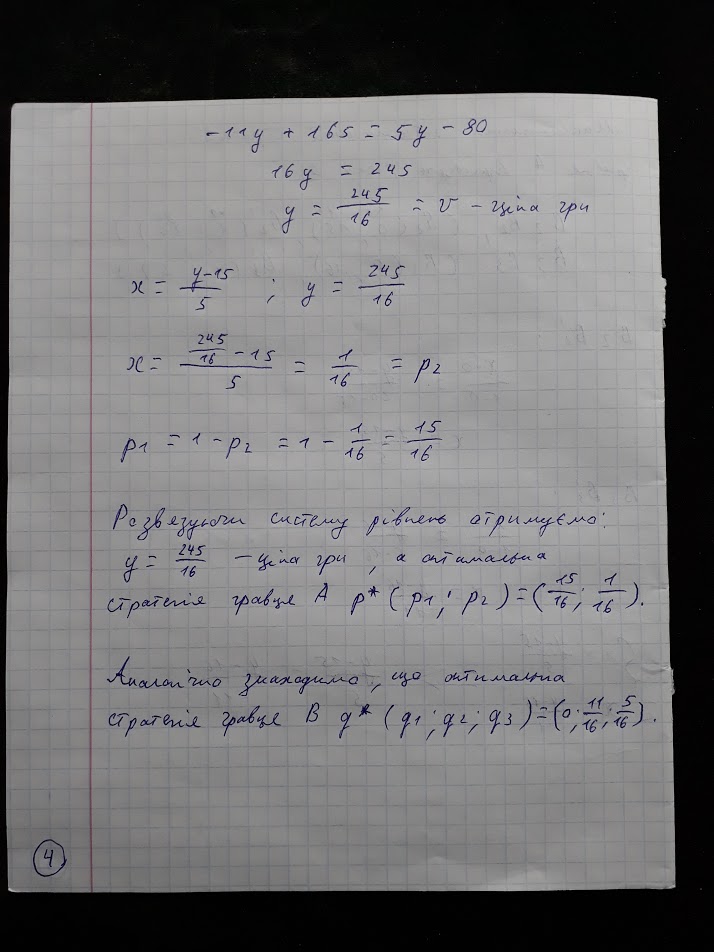 -11y + 165 = 5y - 80
16y = 245
y = 245/16 = v - ціна гри
x = (y-15)/5 ; y = 245/16
x = (245/16 - 15)/5 = 1/16 = p2
p1 = 1 - p2 = 1 - 1/16 = 15/16
Розвязуючи систему рівнень отримуємо:
y = 245/16 - ціна гри, а оптимальна
стратегія гравце A p*(p1; p2) = (15/16; 1/16).
Аналогічно знаходимо, що оптимальна
стратегія гравце B q*(q1; q2; q3) = (0; 11/16; 5/16).
4